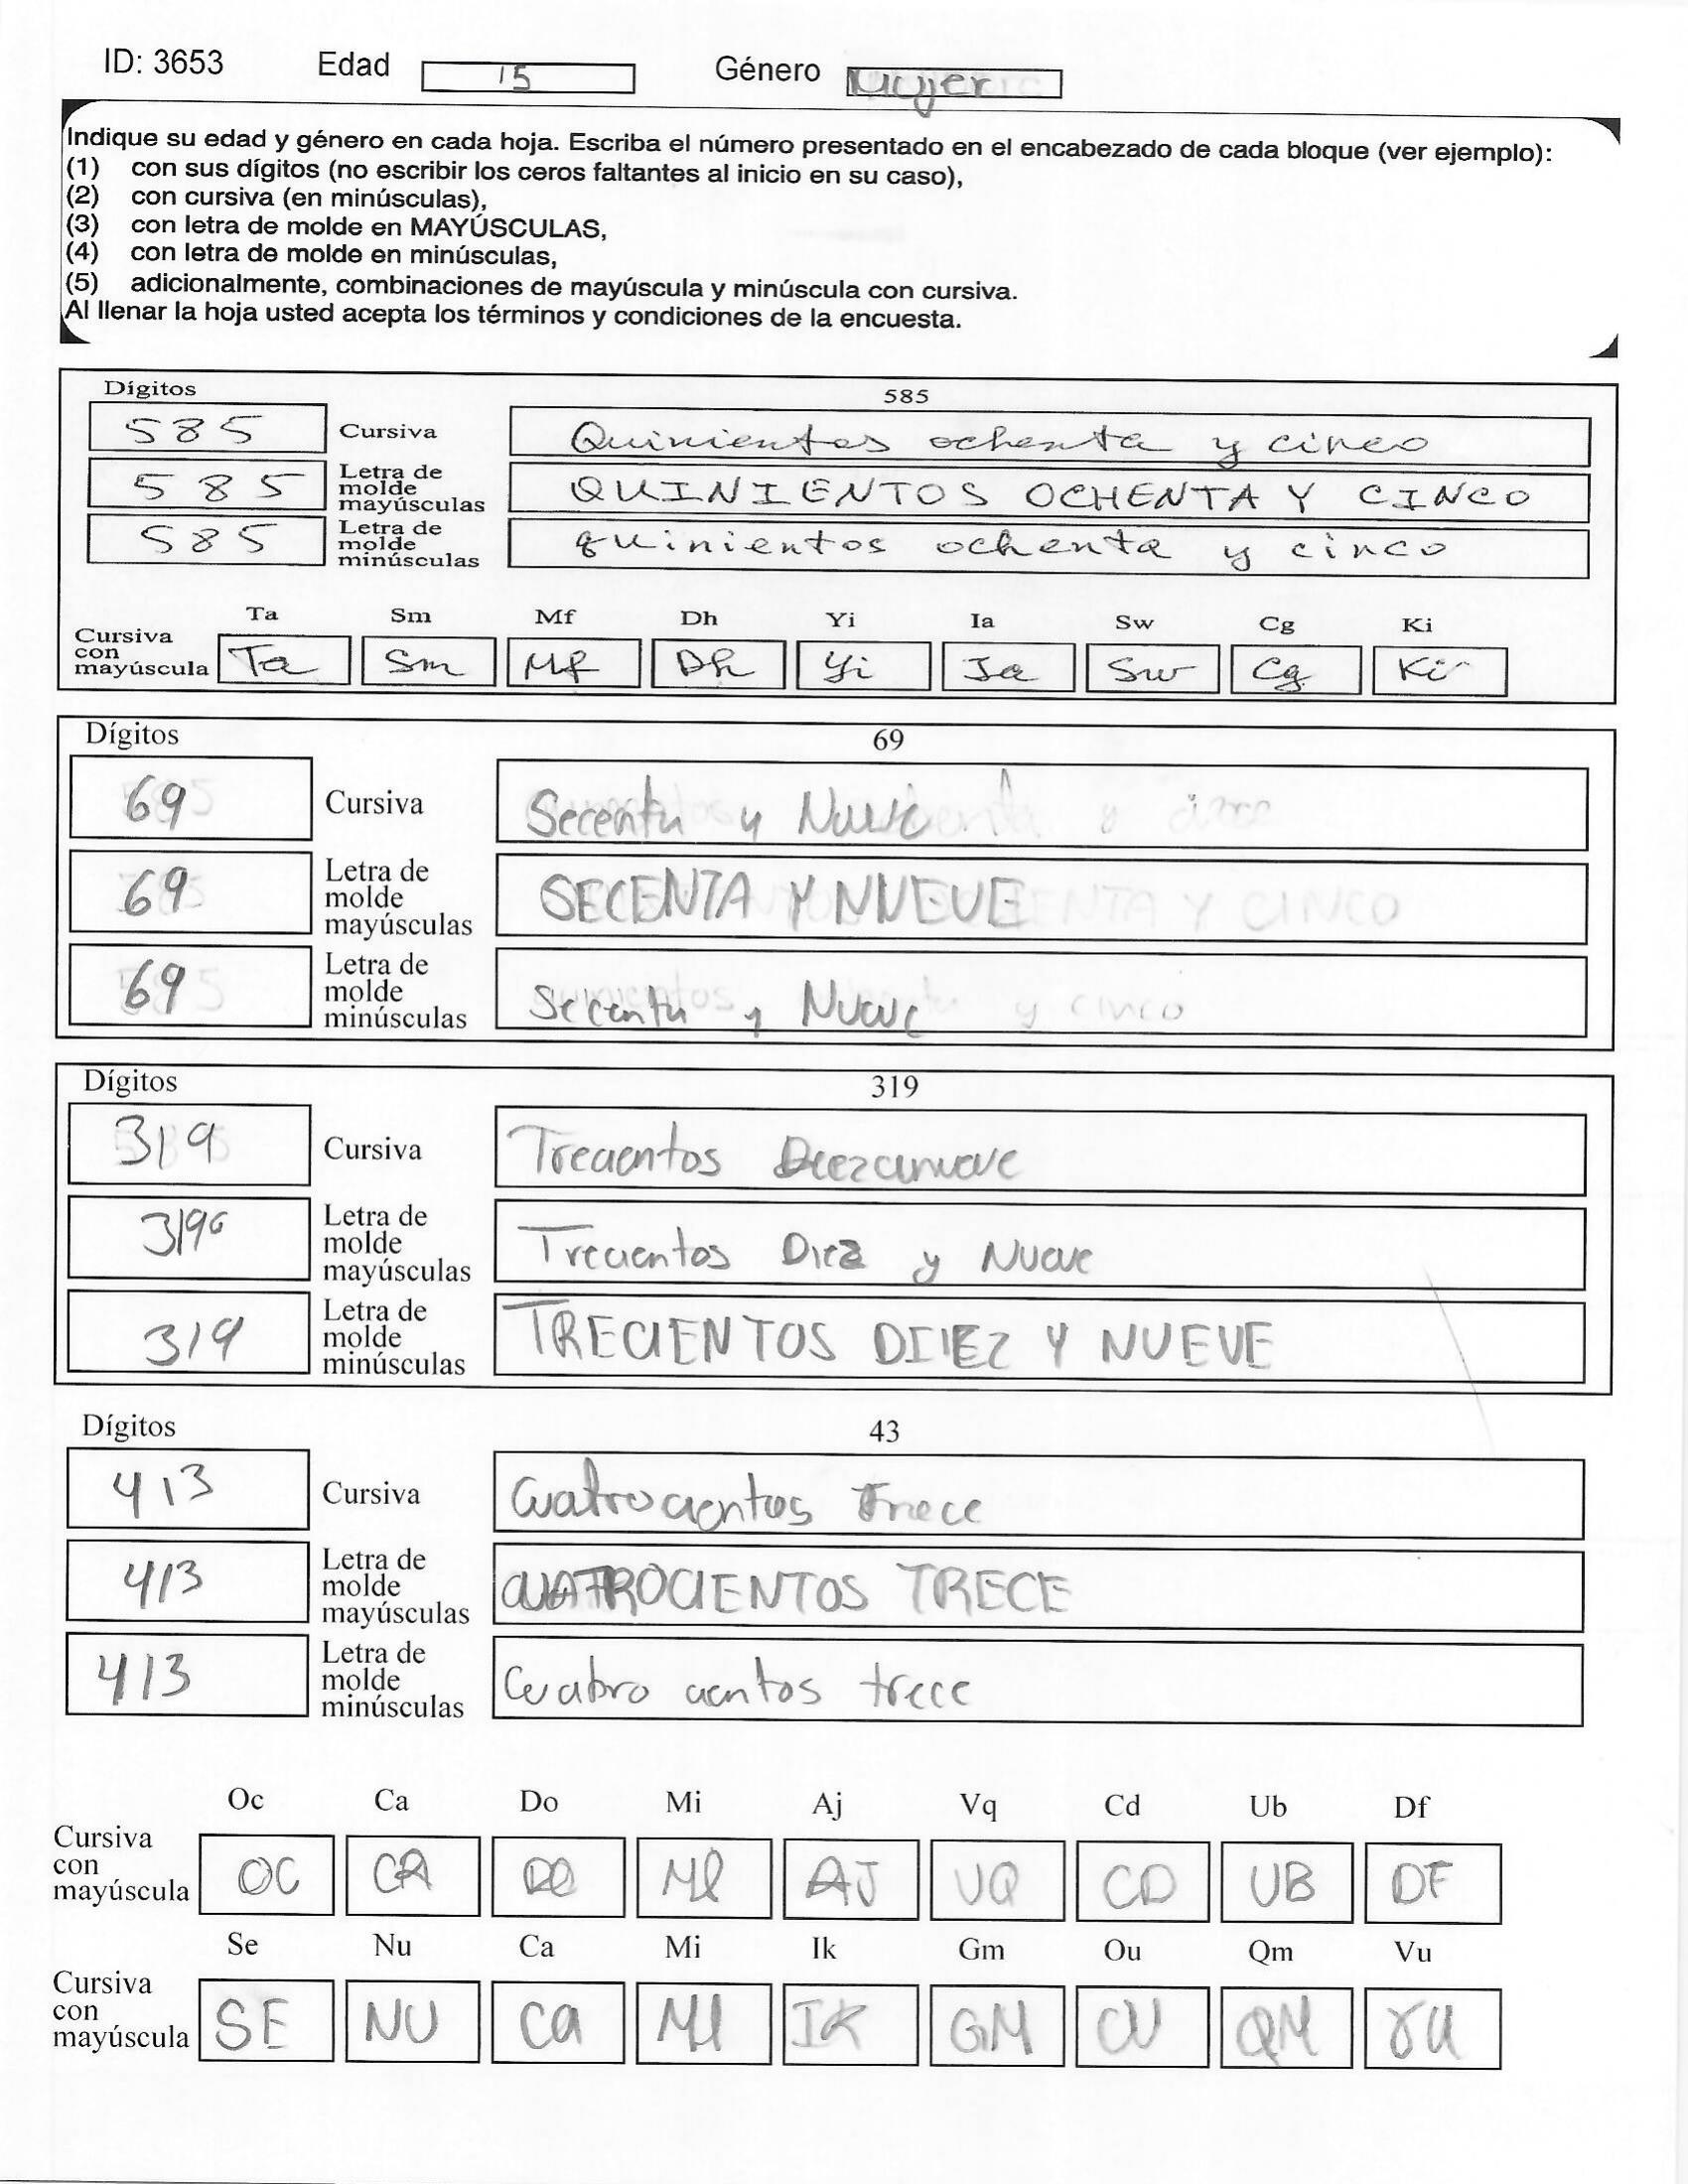 ID: 3653 Edad 15 Género Mujer
Indique su edad y género en cada hoja. Escriba el número presentado en el encabezado de cada bloque (ver ejemplo):
(1) con sus dígitos (no escribir los ceros faltantes al inicio en su caso),
(2) con cursiva (en minúsculas),
(3) con letra de molde en MAYÚSCULAS,
(4) con letra de molde en minúsculas,
(5) adicionalmente, combinaciones de mayúscula y minúscula con cursiva.
Al llenar la hoja usted acepta los términos y condiciones de la encuesta.
Dígitos 585
585 Cursiva Quinientos ochenta y cinco
585 Letra de molde mayúsculas QUINIENTOS OCHENTA Y CINCO
585 Letra de molde minúsculas quinientos ochenta y cinco
Ta Sm Mf Dh Yi Ia Sw Cg Ki
Cursiva con mayúscula Ta Sm Mf Dh Yi Ia Sw Cg Ki
Dígitos 69
69 Cursiva Secenta y Nueve
69 Letra de molde mayúsculas SECENTA Y NNEVE
69 Letra de molde minúsculas Secenta y Nueve
Dígitos 319
319 Cursiva Trecientos Diezcinueve
319 Letra de molde mayúsculas Trecientos Diez y Nueve
319 Letra de molde minúsculas TRECIENTOS DIIEZ Y NUEVE
Dígitos 43
413 Cursiva Cuatrocientos Trece
413 Letra de molde mayúsculas CUATROCIENTOS TRECE
413 Letra de molde minúsculas Cuatro cientos trece
Oc Ca Do Mi Aj Vq Cd Ub Df
Cursiva con mayúscula OC CA DO MI AJ VQ CD UB DF
Se Nu Ca Mi Ik Gm Ou Qm Vu
Cursiva con mayúscula SE NU Ca MI IK GM OU QM VU